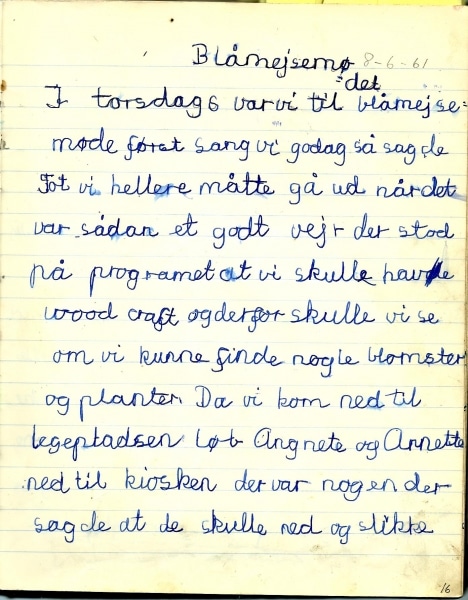 Blåmejsemø= 8-6-61
det
I torsdags var vi til blåmejse=
møde først sang vi godag så sagde
Tot vi hellere måtte gå ud når det
var sådan et godt vejr der stod
på programet at vi skulle havde
wood craft og derfor skulle vi se
om vi kunne finde nogle blomster
og planter. Da vi kom ned til
legepladsen løb Angnete og Annette
ned til kiosken der var nogen der
sagde at de skulle ned og slikke
16